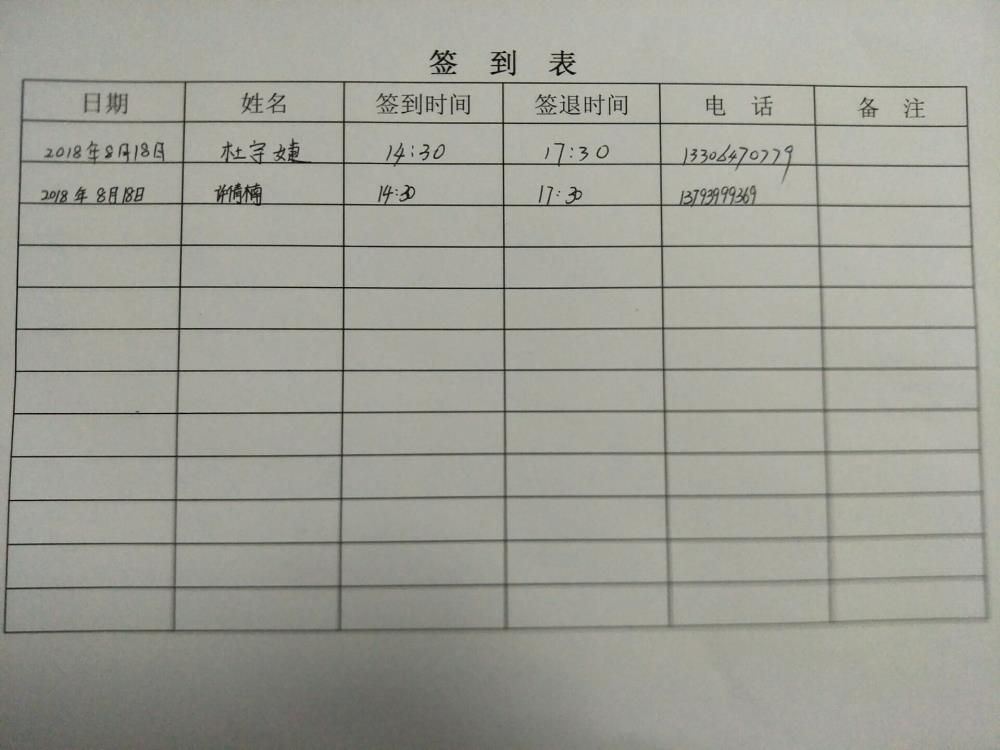 签 到 表
日期 姓名 签到时间 签退时间 电 话 备 注
2018年8月18日 杜宇婕 14:30 17:30 13306470779
2018年8月18日 许倩楠 14:30 17:30 13793999369